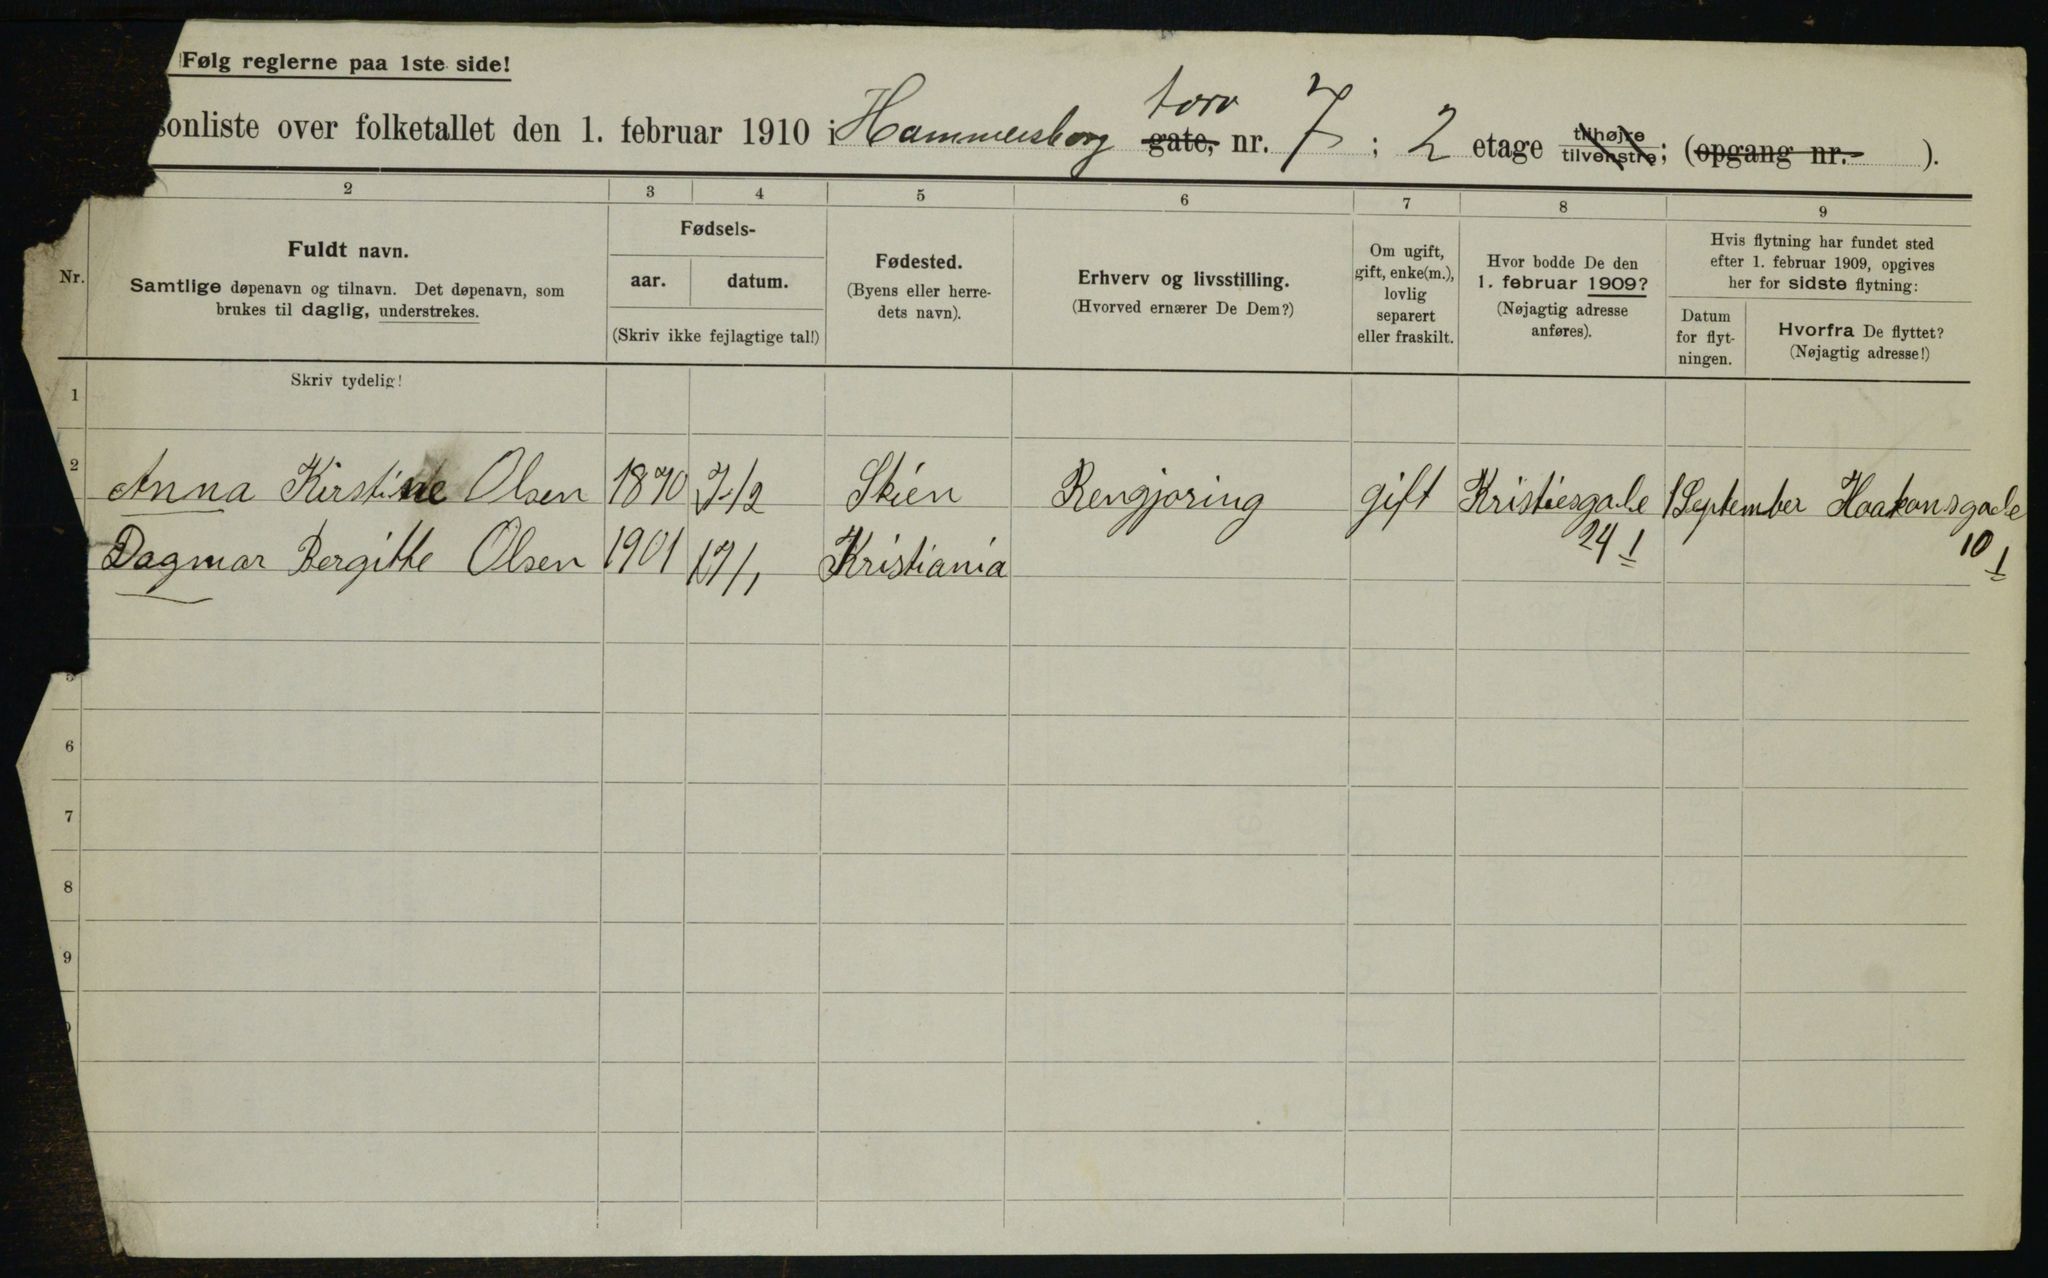 Følg reglerne paa 1ste side!
sonliste over folketallet den 1. februar 1910 i Hammersborg gate, torv nr. 7 ; 2 etage tilhøjre tilvenstre; (opgang nr. ).
2 3 4 5 6 7 8 9
Nr.
Fuldt navn.
Samtlige døpenavn og tilnavn. Det døpenavn, som
brukes til daglig, understrekes.
Fødsels-
aar. datum.
(Skriv ikke fejlagtige tal!)
Fødested.
(Byens eller herre-
dets navn).
Erhverv og livsstilling.
(Hvorved ernærer De Dem?)
Om ugift,
gift, enke(m.),
lovlig
separert
eller fraskilt.
Hvor bodde De den
1. februar 1909?
(Nøjagtig adresse
anføres).
Hvis flytning har fundet sted
efter 1. februar 1909, opgives
her for sidste flytning:
Datum
for flyt-
ningen.
Hvorfra De flyttet?
(Nøjagtig adresse!)
Skriv tydelig!
1
2 Anna Kirstine Olsen 1870 7/12 Skien Rengjøring gift Kristiesgade 24 I 1 September Haakonsgade 10 I
Dagmar Bergitte Olsen 1901 17/1 Kristiania
5
6
7
8
9